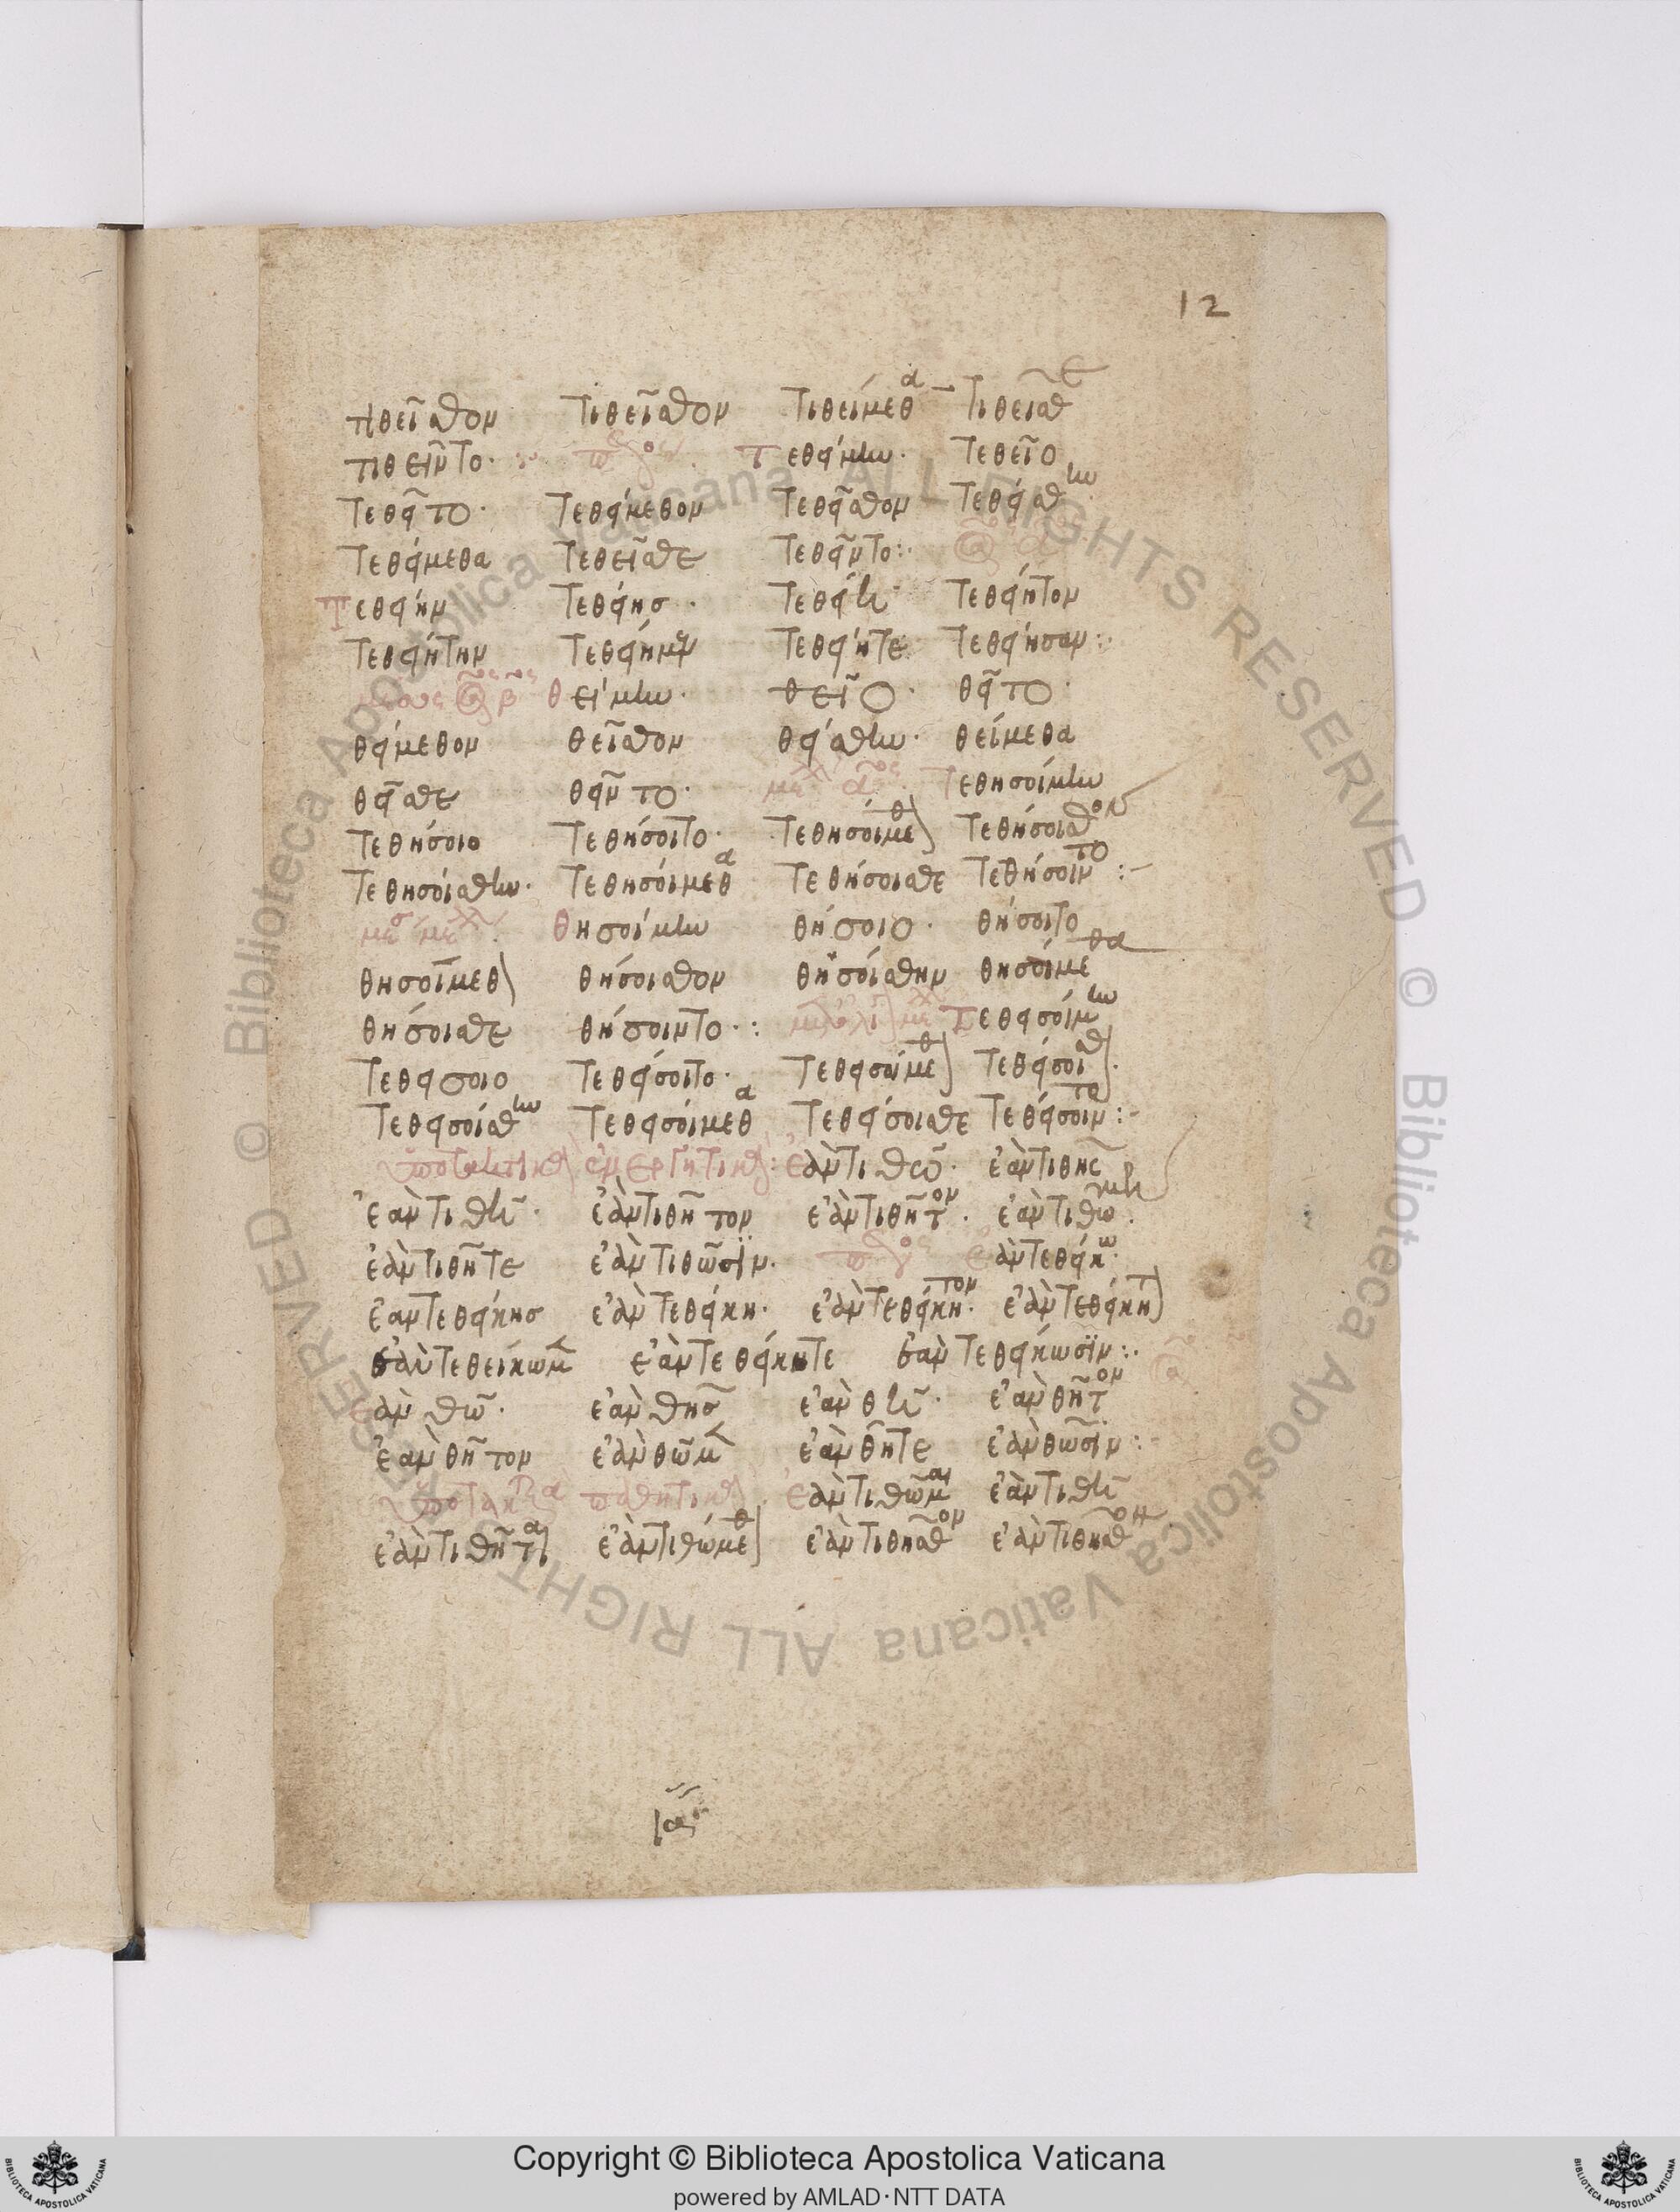 12
τιθεῖσθον τιθεῖσθον τιθείμεθα τιθεῖσθε
τιθεῖντο. τεθείμην. τεθεῖο
τεθεῖτο. τεθείμεθον τεθεῖσθον τεθείσθην
τεθείμεθα τεθεῖσθε τεθεῖντο:
τεθείην τεθείης τεθείη τεθείητον
τεθειήτην τεθείημεν τεθείητε τεθείησαν:
θείμην. θεῖο. θεῖτο.
θείμεθον θεῖσθον θείσθην. θείμεθα
θεῖσθε θεῖντο. τεθησοίμην
τεθήσοιο τεθήσοιτο. τεθησοίμεθ τεθήσοισθον
τεθησοίσθην. τεθησοίμεθα τεθήσοισθε τεθήσοιντο:-
θησοίμην θήσοιο. θήσοιτο
θησοίμεθ θήσοισθον θησοίσθην θησοίμεθα
θήσοισθε θήσοιντο.: τεθεισοίμην
τεθείσοιο τεθείσοιτο. τεθεισοίμεθ τεθείσοισθ
τεθεισοίσθην τεθεισοίμεθα τεθείσοισθε τεθείσοιντο:-
ἐὰν τιθῶ. ἐὰν τιθῆς
ἐὰν τιθῆ. ἐὰν τιθῆτον ἐὰν τιθῆτον. ἐὰν τιθῶμεν.
ἐὰν τιθῆτε ἐὰν τιθῶσϊν. ἐὰν τεθείκω.
ἐὰν τεθείκης ἐὰν τεθείκη. ἐὰν τεθείκητον. ἐὰν τεθείκητ
ἐὰν τεθείκωμεν ἐὰν τεθείκητε ἐὰν τεθείκωσϊν:.
ἐὰν θῶ. ἐὰν θῆς ἐὰν θῆ. ἐὰν θῆτον
ἐὰν θῆτον ἐὰν θῶμεν ἐὰν θῆτε ἐὰν θῶσϊν:
παθητικ ἐὰν τιθῶμαι ἐὰν τιθῆ
ἐὰν τιθῆται ἐὰν τιθώμεθ ἐὰν τιθῆσθον ἐὰν τιθῆσθον
© Biblioteca Apostolica Vicana ALL RIGHTS RESERVED © Biblioteca Apostolica Vaticana ALL RIGHTS RESERVED
Copyright © Biblioteca Apostolica Vaticana
powered by AMLAD·NTT DATA
BIBLIOTECA APOSTOLICA VATICANA